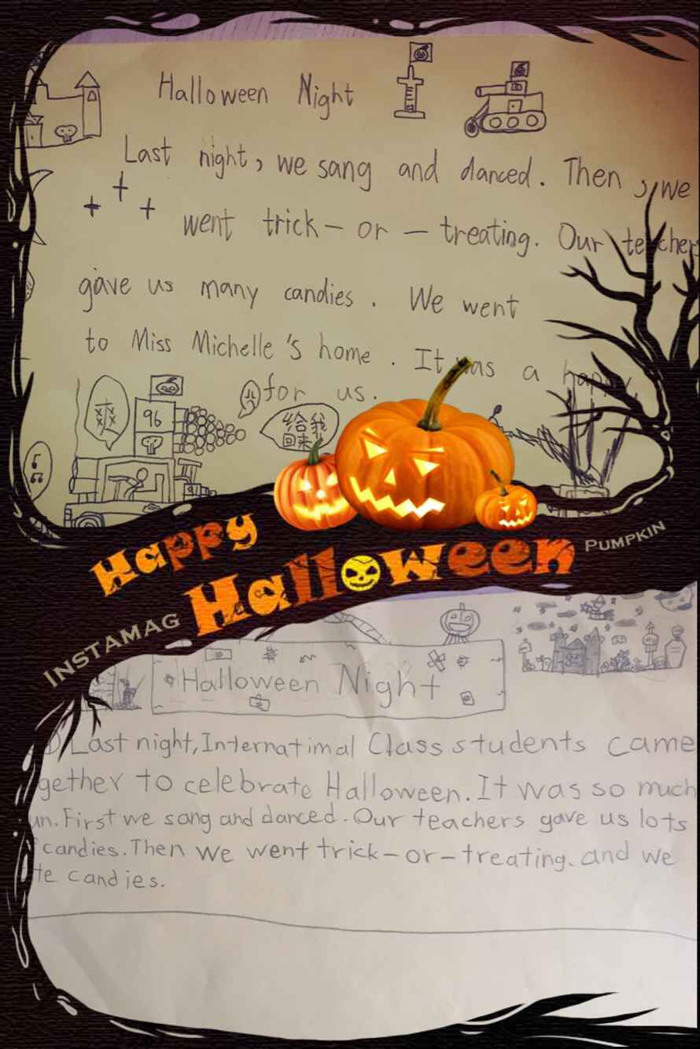 Halloween Night
Last night, we sang and danced. Then, we
went trick-or-treating. Our teachers
gave us many candies. We went
to Miss Michelle's home. It was a happy
for us.
爽
96
给我
回来
Happy
Halloween
PUMPKIN
INSTAMAG
Halloween Night
Last night, Internatimal Class students came
gether to celebrate Halloween. It was so much
un. First we sang and danced. Our teachers gave us lots
candies. Then we went trick-or-treating. and we
te candies.